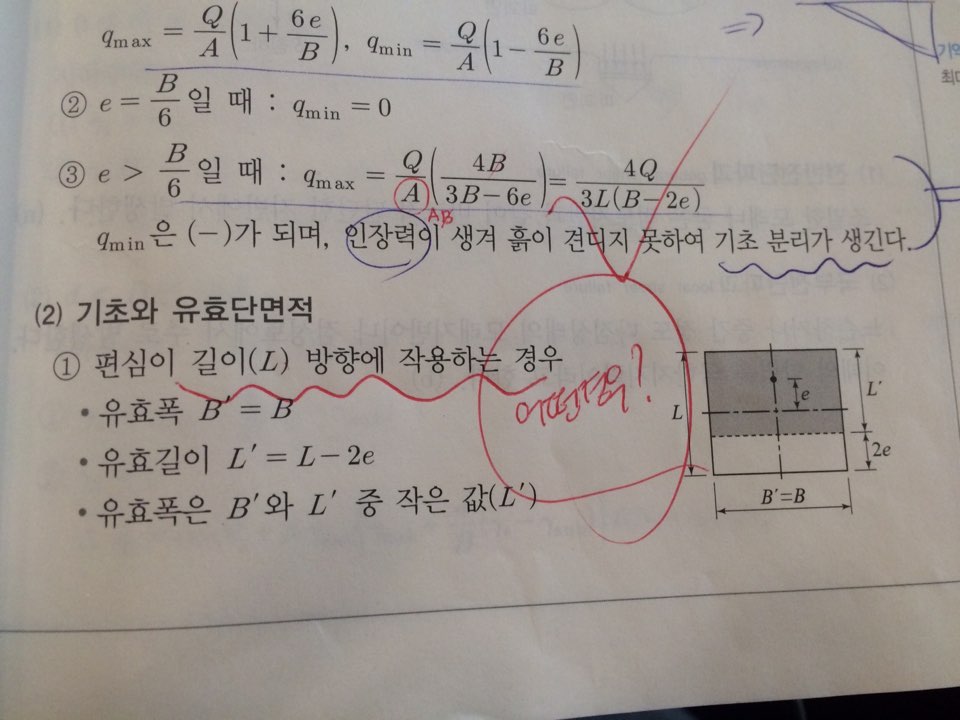 q_max = Q/A(1+ 6e/B), q_min = Q/A(1− 6e/B)
② e = B/6 일 때 : q_min = 0
③ e > B/6 일 때 : q_max = Q/A(4B/(3B−6e)) = 4Q/(3L(B−2e))
AB
q_min 은 (−)가 되며, 인장력이 생겨 흙이 견디지 못하여 기초 분리가 생긴다.
(2) 기초와 유효단면적
① 편심이 길이(L) 방향에 작용하는 경우
어떤경우?
• 유효폭 B′ = B
• 유효길이 L′ = L−2e
• 유효폭은 B′와 L′ 중 작은 값(L′)
L
e
L′
2e
B′=B